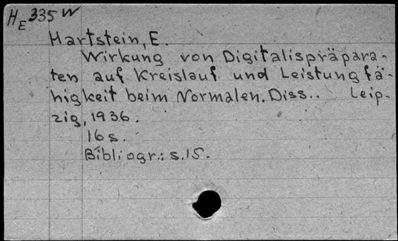 HE 335 W
Hartstein, E.
Wirkung von Digitalispräpara-
ten auf Kreislauf und Leistungfä-
higkeit beim Normalen. Diss.. Leip-
zig, 1936.
16 s.
Bibliogr.: s. 15.